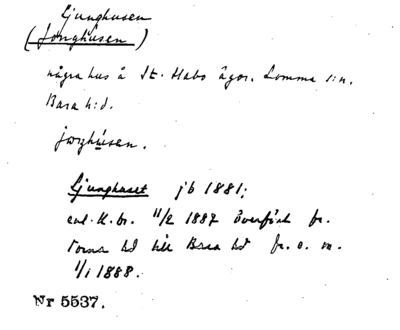 Ljunghusen
(Jonghusen)
några hus å St. Habo ägor. Lomma s:n.
Bara h:d.
Ljunghuset jb 1881;
enl. K. br. 11/2 1887 överfört fr.
Torna hd till Bara hd fr. o. m.
1/1 1888.
Nr 5537.